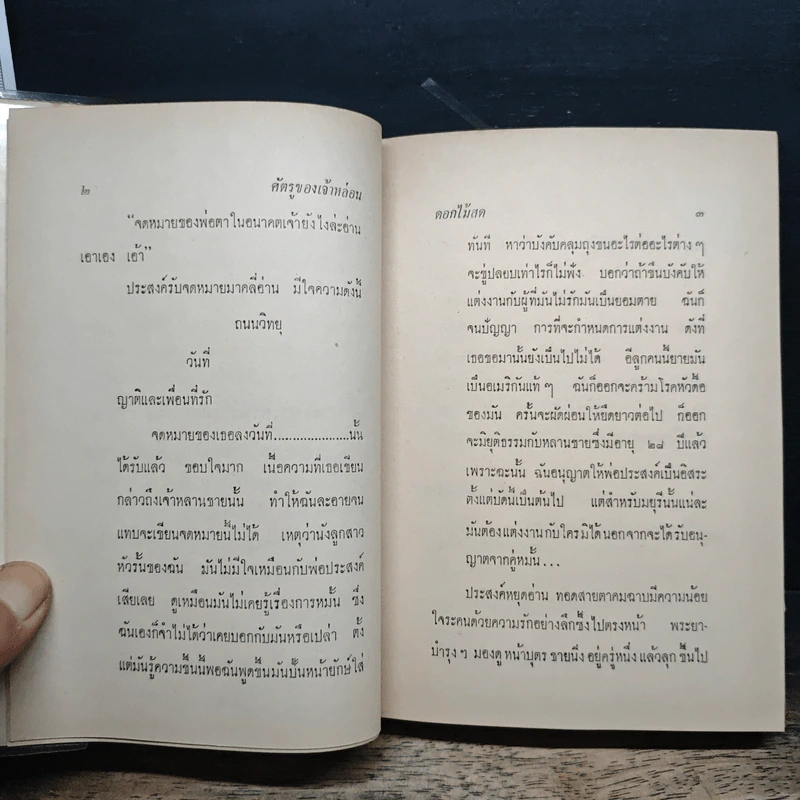 ๒ ศัตรูของเจ้าหล่อน
“จดหมายของพ่อตาในอนาคตเจ้ายังไงล่ะอ่าน
เอาเอง เอ้า”
ประสงค์รับจดหมายมาคลี่อ่าน มีใจความดังนี้
ถนนวิทยุ
วันที่
ญาติและเพื่อนที่รัก
จดหมายของเธอลงวันที่.....................นั้น
ได้รับแล้ว ขอบใจมาก เนื้อความที่เธอเขียน
กล่าวถึงเจ้าหลานชายนั้น ทำให้ฉันละอายจน
แทบจะเขียนจดหมายนี้ไม่ได้ เหตุว่านังลูกสาว
หัวรั้นของฉัน มันไม่มีใจเหมือนกับพ่อประสงค์
เสียเลย ดูเหมือนมันไม่เคยรู้เรื่องการหมั้น ซึ่ง
ฉันเองก็จำไม่ได้ว่าเคยบอกกับมันหรือเปล่า ตั้ง
แต่มันรู้ความขึ้นนี้พอฉันพูดขึ้นมันปั้นหน้ายักษ์ใส่
ดอกไม้สด ๓
ทันที หาว่าบังคับคลุมถุงชนอะไรต่ออะไรต่าง ๆ
จะขู่ปลอบเท่าไรก็ไม่ฟัง บอกว่าถ้าขืนบังคับให้
แต่งงานกับผู้ที่มันไม่รักมันเป็นยอมตาย ฉันก็
จนปัญญา การที่จะกำหนดการแต่งงาน ดังที่
เธอขอมานั้นยังเป็นไปไม่ได้ อีลูกคนนี้ยายมัน
เป็นอเมริกันแท้ ๆ ฉันก็ออกจะคร้ามโรคหัวดื้อ
ของมัน ครั้นจะผัดผ่อนให้ยืดยาวต่อไป ก็ออก
จะมิยุติธรรมกับหลานชายซึ่งมีอายุ ๒๘ ปีแล้ว
เพราะฉะนั้น ฉันอนุญาตให้พ่อประสงค์เป็นอิสระ
ตั้งแต่บัดนี้เป็นต้นไป แต่สำหรับมยุรีนั้นแน่ละ
มันต้องแต่งงานกับใครมิได้นอกจากจะได้รับอนุ-
ญาตจากคู่หมั้น...
ประสงค์หยุดอ่าน ทอดสายตาคมฉาบมีความน้อย
ใจระคนด้วยความรักอย่างลึกซึ้งไปตรงหน้า พระยา-
บำรุง ๆ มองดูหน้าบุตรชายนิ่งอยู่ครู่หนึ่งแล้วลุกขึ้นไป